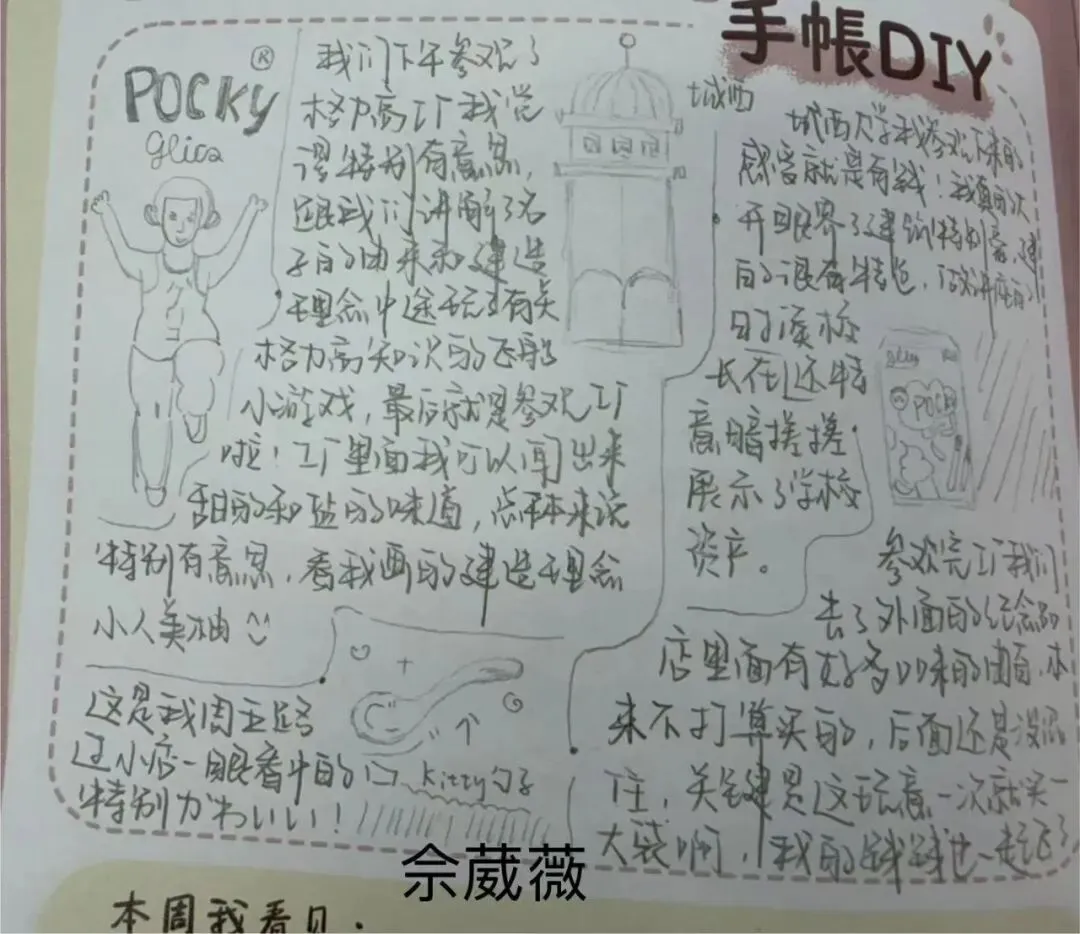 手帳DIY
POCKY
®
Glica
我们下午参观了
格力高工厂我觉
得特别有意思,
跟我们讲解了名
字的由来和建造
理念中途玩了有关
格力高知识的飞船
小游戏,最后就是参观工厂
啦!工厂里面我可以闻出来
甜的和盐的味道,总体来说
特别有意思,看我画的建造理念
小人美柚
城西
城西大学我参观下来的
感容就是有钱!我真的次
开眼界了建筑特别豪,建
的很有特色,
校
长在 还特
意暗搓搓
展示了学校
资产。
POCKY
参观完工厂我们
去了外面的纪念品
店里面有好多口味的 本
来不打算买的,后面还是没忍
住,关键是这玩意一次就买一
大袋啊,我的钱钱也一起飞了
这是我周五
逛小店一眼看中的
Kitty勺子
特别かわいい!
佘葳薇
本周我看见.